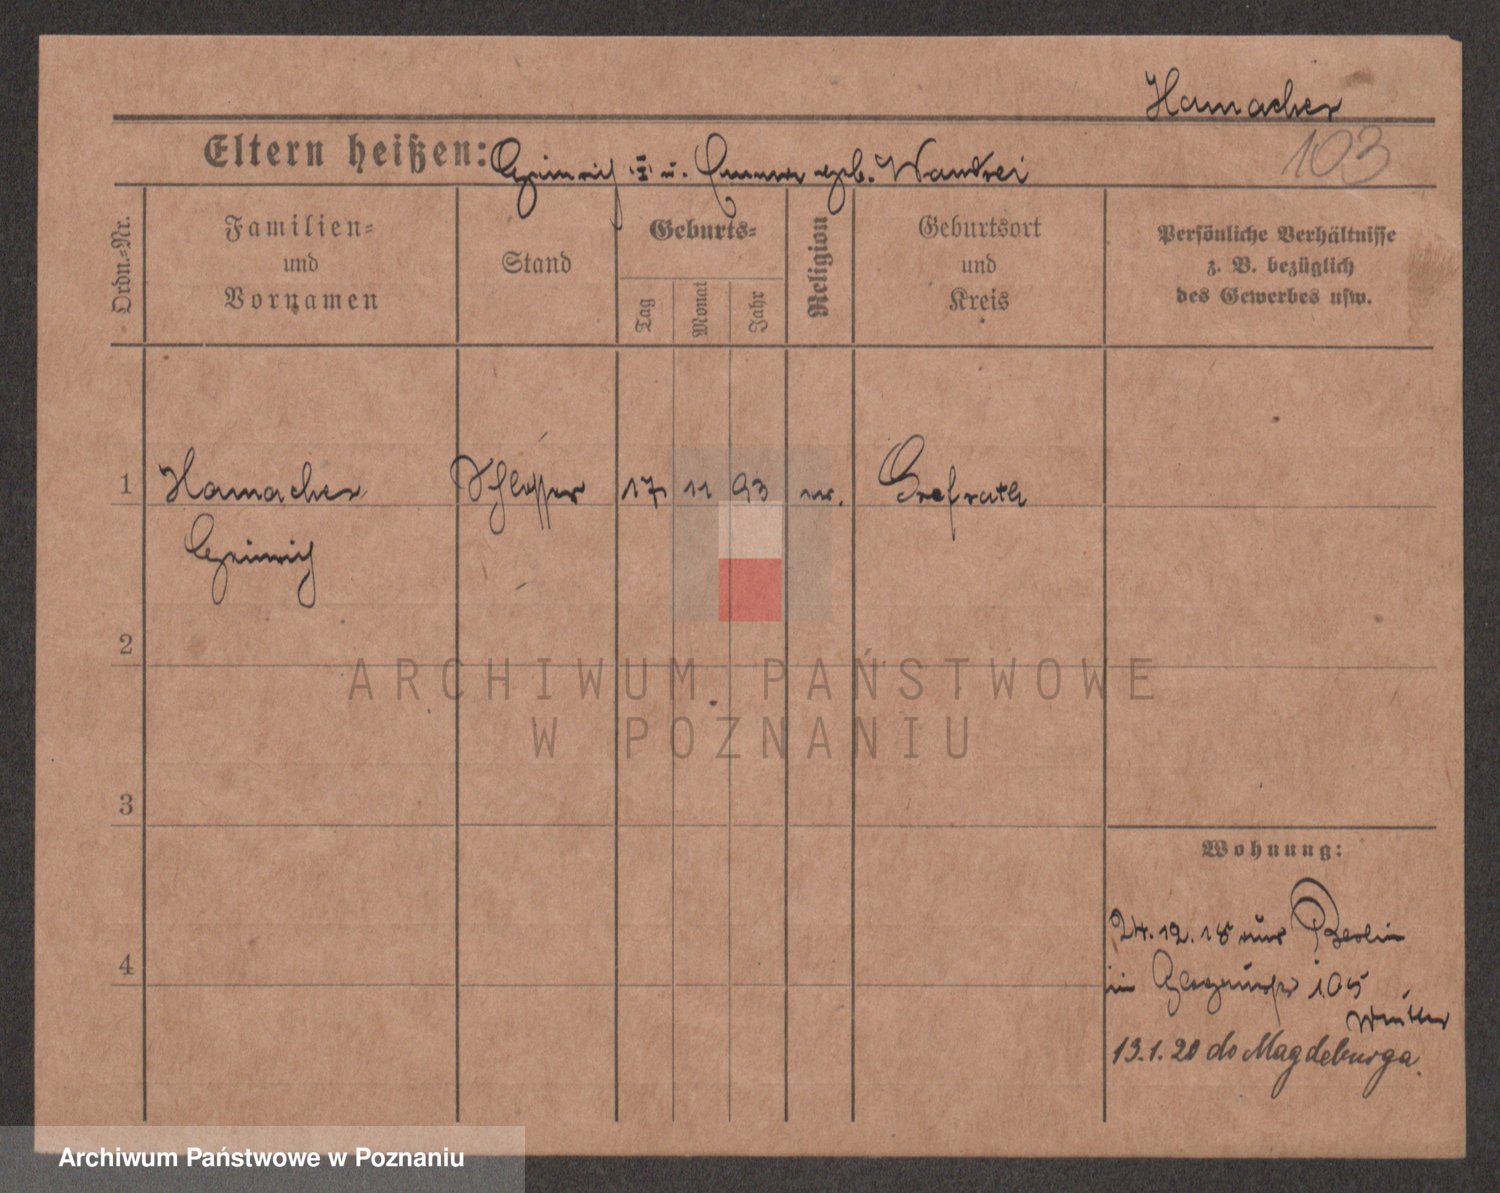 Hamacher
103
Eltern heißen: Heinrich u. geb. Wandrei
Ordn.-Nr.
Familien-
und
Vornamen
Stand
Geburts-
Tag
Monat
Jahr
Religion
Geburtsort
und
Kreis
Persönliche Verhältnisse
z. B. bezüglich
des Gewerbes usw.
1 Hamacher Schlosser 17 11 93 Grefrath
Heinrich
2
ARCHIWUM PAŃSTWOWE
W POZNANIU
3
Wohnung:
24.12.18 aus Berlin
4
in 105
13.1.20 do Magdeburga.
Archiwum Państwowe w Poznaniu